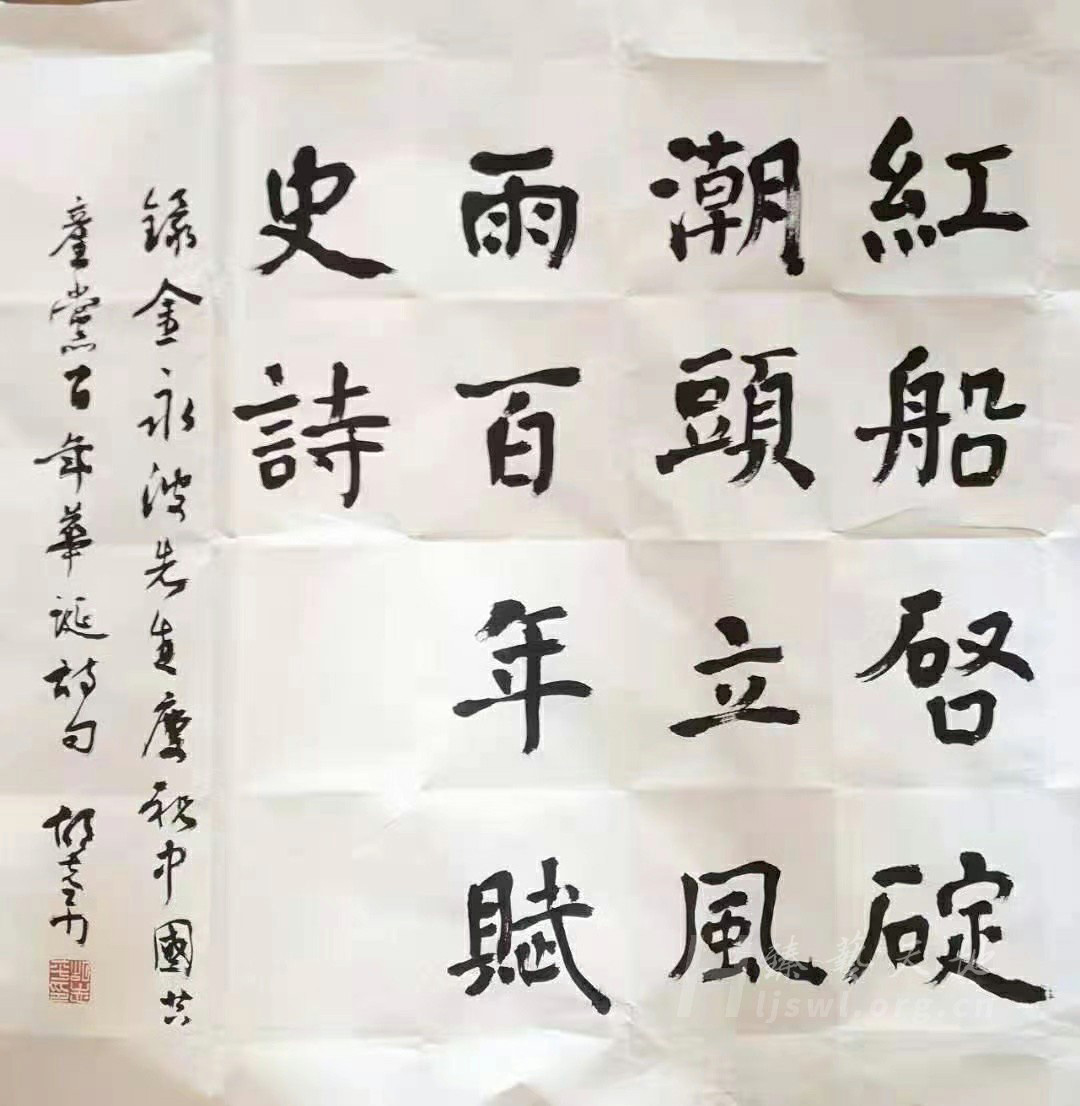 紅船啓碇
潮頭立風
雨百年賦
史詩
錄金永波先生慶祝中國共
產黨百年華誕詩句
ljswl.org.cn